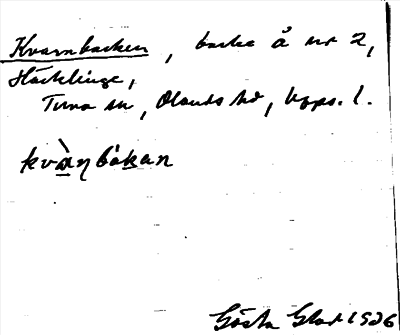 Kvarnbacken, backe å nr 2,
Häcklinge,
Tuna sn, Olands hd, Upps. l.
kvàṇbakan
Gösta Glad 1926